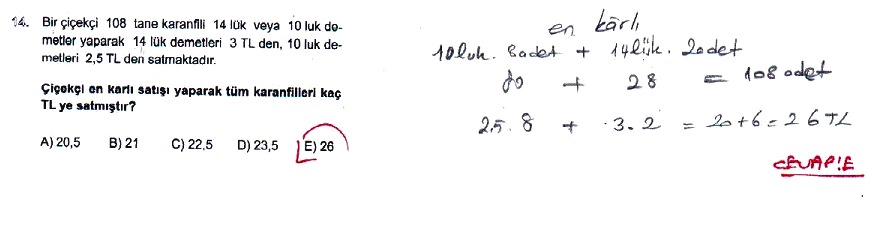 14. Bir çiçekçi 108 tane karanfili 14 lük veya 10 luk de-
metler yaparak 14 lük demetleri 3 TL den, 10 luk de-
metleri 2,5 TL den satmaktadır.
Çiçekçi en karlı satışı yaparak tüm karanfilleri kaç
TL ye satmıştır?
A) 20,5 B) 21 C) 22,5 D) 23,5 E) 26
en kârlı
10luk. 8adet + 14lük. 2adet
80 + 28 = 108 adet
2,5. 8 + .3. 2 = 20+6 = 26 TL
CEVAP:E